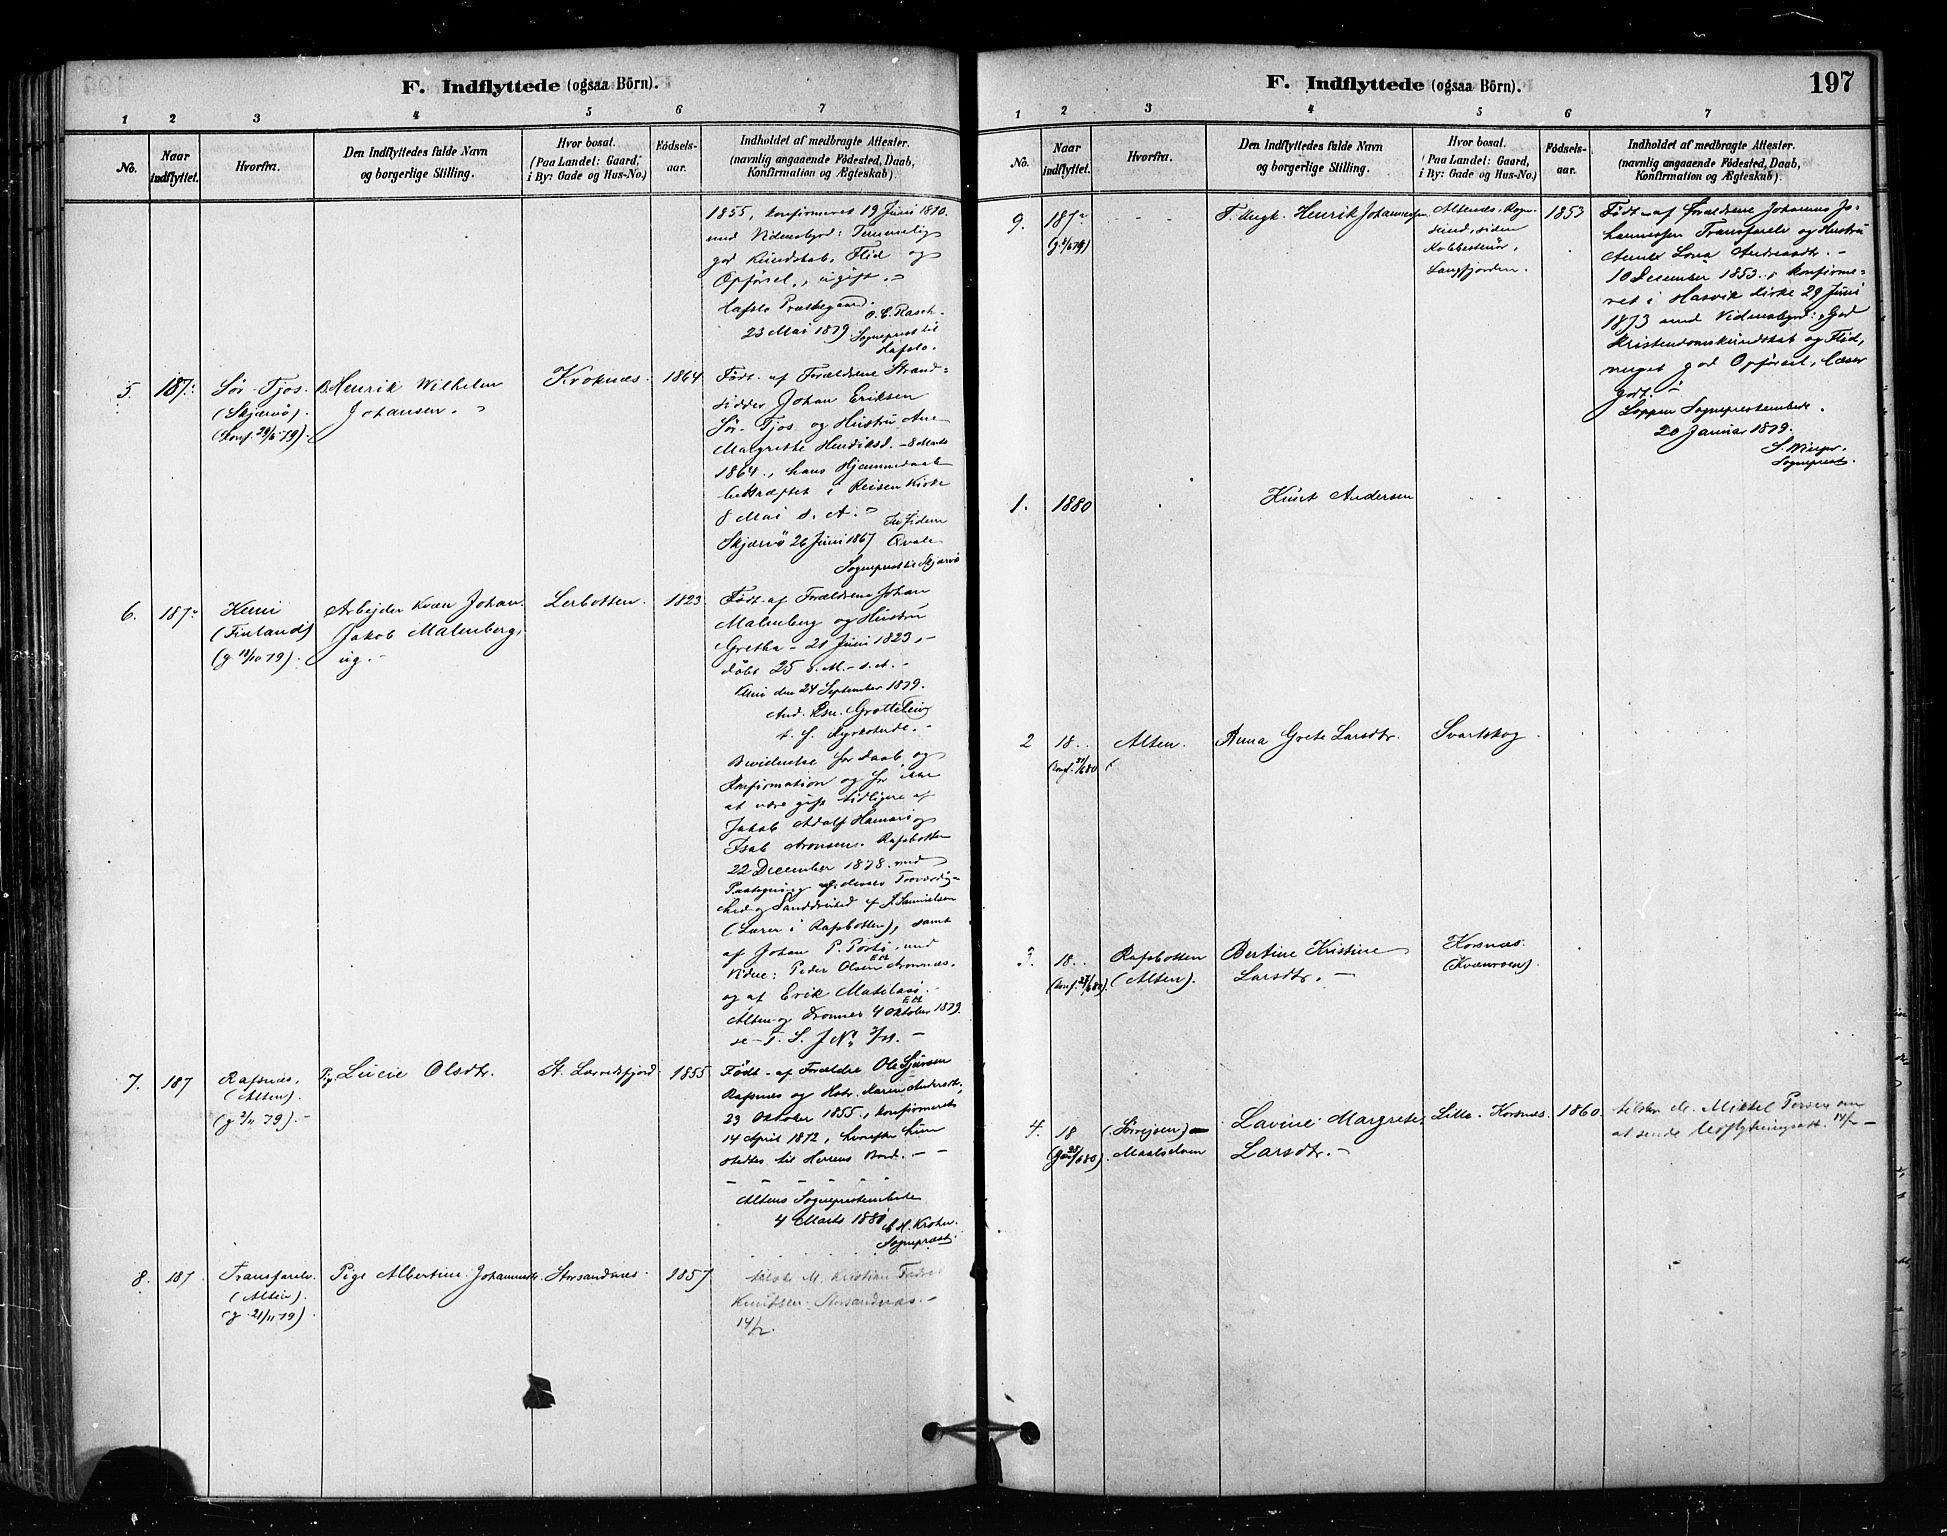 F. Indflyttede (ogsaa Börn).
1 2 3 4 5 6 7
No.
Naar indflyttet.
Hvorfra.
Den Indflyttedes fulde Navn
og borgerlige Stilling.
Hvor bosat.
(Paa Landet: Gaard,
i By: Gade og Hus-No.)
Fødsels-
aar.
Indholdet af medbragte Attester.
(navnlig angaaende Fødested, Daab,
Konfirmation og Ægteskab).
1855, konfirmeret 19 Juni 1870
med Vidnesbyrd: Temmelig
god Kundskab, Flid og
Opførsel, ugift.
Hafslo Præstegaard
23 Mai 1879
Sogneprest til
Hafslo.
5. 187. Sör-Tjos. Henrik Wilhelm Kvoknæs. 1864
(Skjærvö). Johansen.
(Konf. 29/6 79).
Født af Forældrene Strand-
sidder Johan Eriksen
Sör-Tjos og Hustru Ane
Margrethe Henriksd. 8 Marts
1864, hans Hjemmedaab
bekræftet i Reisen Kirke
8 Mai s. A.
Skjærvö 26 Juni 1867 Qvale
Sogneprest til Skjærvö
6. 187. Kemi Arbejder Kvæn Johan Lerbotten. 1823.
(Finland) Jakob Malmberg,
(g 12/10 79). ug.
Født af Forældrene Johan
Malmberg og Hustru
Gretha 21 Juni 1823,
døbt 25 s.M. s.A.
Kemi den 24 September 1879.
Bevidnelse for Daab og
Konfirmation og for ikke
at være gift tidligere af
Jakob Adolf Hamari og
Isak Aronsen. Rafsbotten
22 December 1878 med
Paategning af deres Troværdig-
hed og Sanddruhed af J. Samuelsen
(Lærer i Rafsbotten), samt
af Johan P. Porti, med
Vidne: Peder Olsen Aronnæs.
og af Erik Matilasi.
Alten og 4 Oktober 1879.
7. 187 Rafsnæs, Pg. Lucie Olsdtr. St. Lerresfjord. 1855
(Alten).
(g 2/11 79).
Født af Forældre Ole Sjursen
Rafsnæs og Hstr. Karen Andersdt.,
23 Oktober 1855, konfirmeret
14 April 1872, hvorefter hun
stedtes til Herrens Bord.
Altens Sogneprestembede
4 Marts 1880
Sogneprest.
8. 187. Transfarelv. Pige Albertine Johannesdtr. Storsandnæs. 1857
(Alten).
(g. 21/11 79)
tilskr. M. Kristian
Knudsen Storsandnæs.
14/2
F. Indflyttede (ogsaa Börn). 197
1 2 3 4 5 6 7
No.
Naar indflyttet.
Hvorfra.
Den Indflyttedes fulde Navn
og borgerlige Stilling.
Hvor bosat.
(Paa Landet: Gaard,
i By: Gade og Hus-No.)
Fødsels-
aar.
Indholdet af medbragte Attester.
(navnlig angaaende Fødested, Daab,
Konfirmation og Ægteskab).
9. 187. Henrik Johannessen 1853
siden
Kobbesteinör,
Langfjorden.
Født af Forældrene Johannes Jo-
hannessen Transfarelv og Hustru
Lona Andreasdtr.
10 December 1853, konfirme-
ret i Hasvik Kirke 29 Juni
1873 med Vidnesbyrd: God
Kristendomskundskab og Flid,
meget god Opførsel, læser
godt.
Loppen Sogneprestembede.
20 Januar 1879.
Sogneprest.
1. 1880 Knut Andersen
2 18.. Alten. Anna Grete Larsdtr. Svartskog
(Konf. 27/6 80
3. 18.. Rafsbotten Bertine Kristine Korsnæs.
(Konf. 27/6 80). (Alten). Larsdtr. (Kvænvien).
4. 18 (Sörrejsen) Lavine Margrete Lille-Korsnæs. 1860.
Maalselven Larsdtr.
tilskr. M. Mikkel Persen om
at sende Udflytningsatt. 14/2